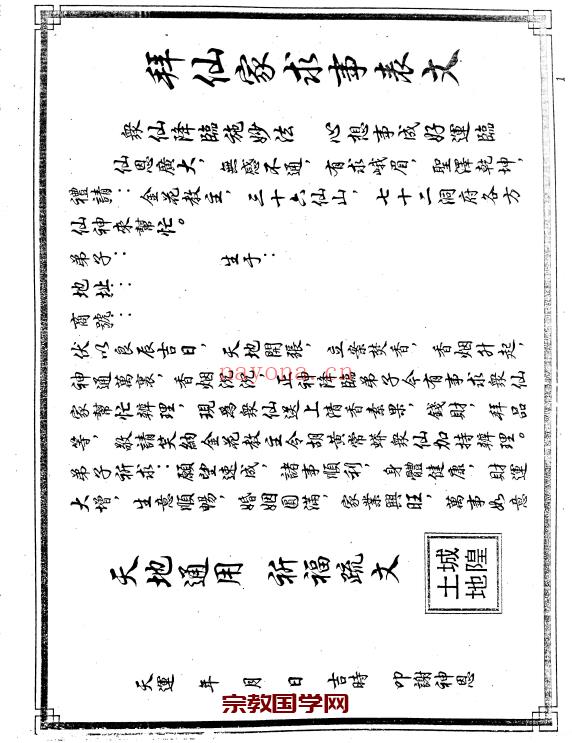 拜仙家求事表文
1
衆仙降臨施妙法 心想事成好運臨
仙恩廣大，無感不通，有求峨眉，聖澤乾坤，
禮請：金花教主，三十六仙山，七十二洞府各方
仙神來幫忙。
弟子： 生于：
地址：
商號：
伏以良辰吉日，天地開張，立案焚香，香烟升起，
神通萬裏，香烟沉沉，山神降臨弟子今有事求衆仙
家幫忙辦理，現爲衆仙送上清香素果，錢財，拜品
等，敬請笑納金花教主令胡黃常蟒衆仙加持辦理。
弟子祈求：願望速成，諸事順利，身體健康，財運
大增，生意順暢，婚姻圓滿，家業興旺，萬事如意
天地通用 祈福疏文
城隍
土地
天運 年 月 日 吉時 叩謝神恩
nayona.cn
宗教国学网